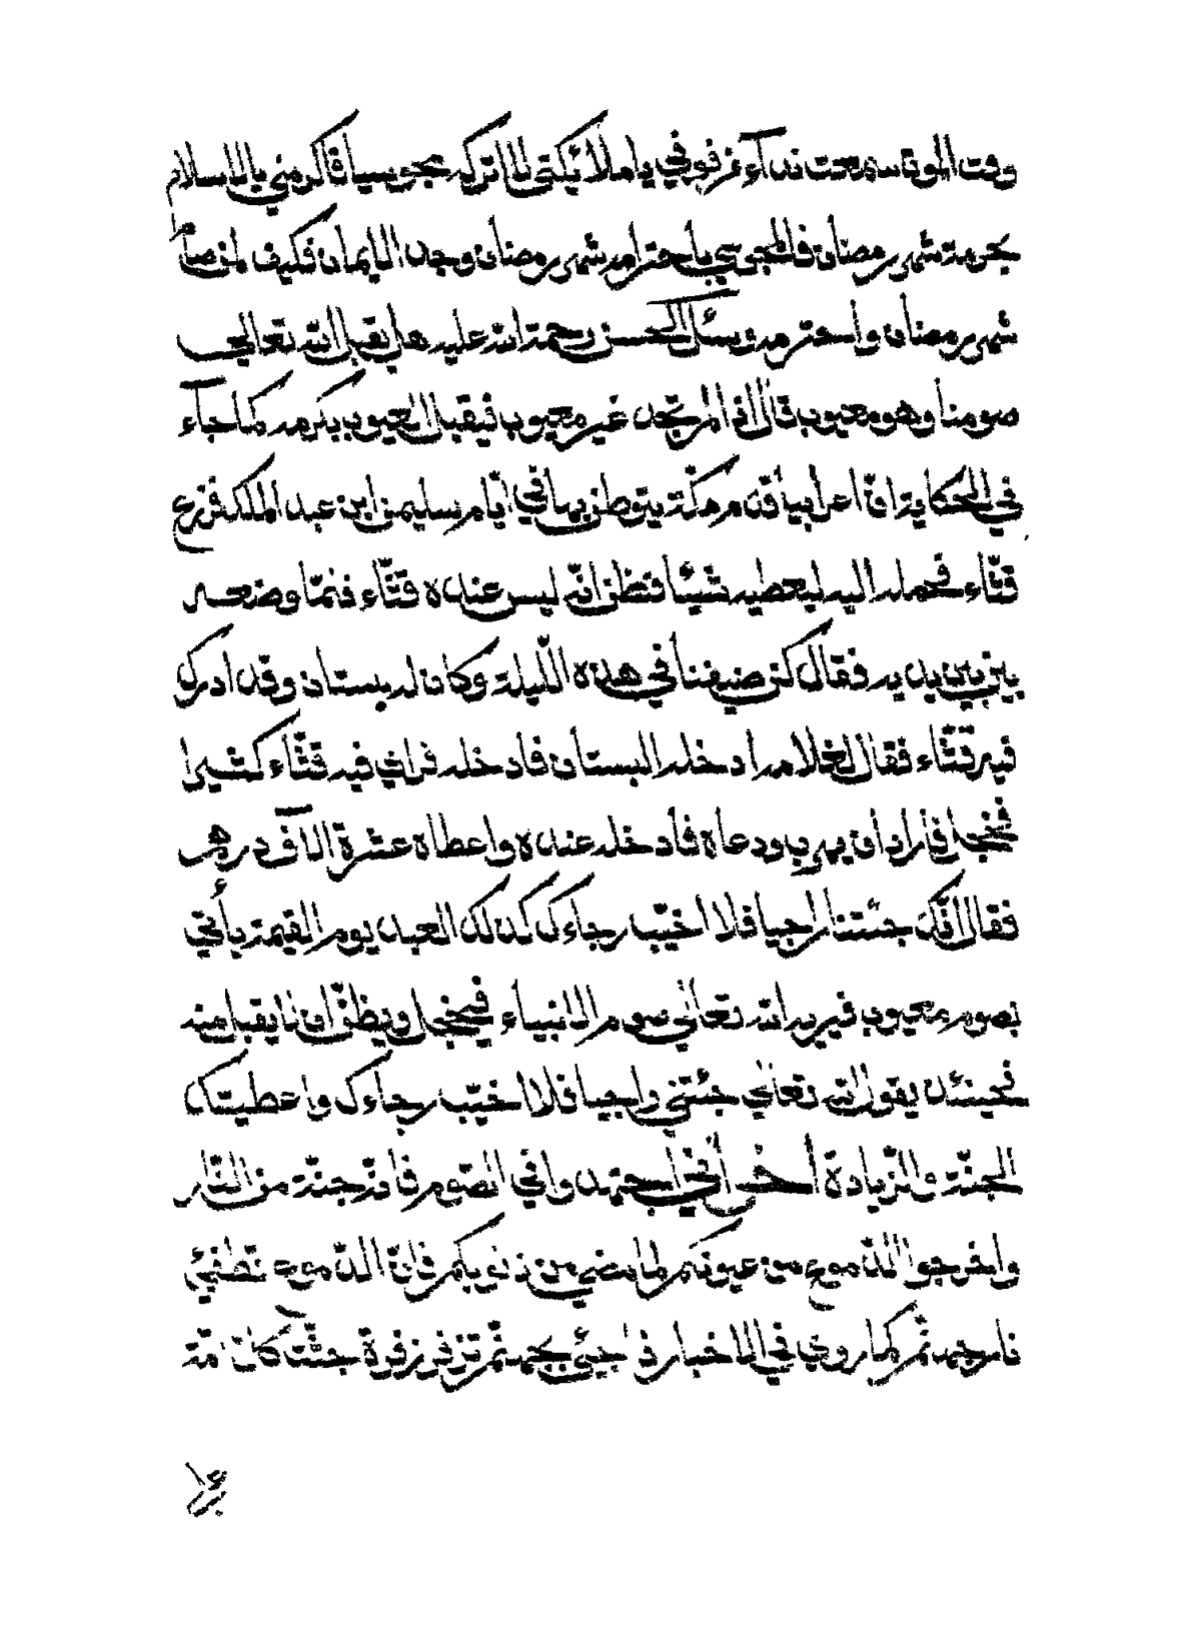 وقت الموت سمعت نداء من فوقي يا ملائكتي لا تتركه مجوسيا فاكرمني بالاسلام
بحرمة شهر رمضان فالمجوسي باحترام شهر رمضان وجد الايمان فكيف لمن صام
شهر رمضان واحترمه وسئل الحسن رحمة الله عليه هل يقبل الله تعالى
صومنا وهو معيوب قال اذا لم تجد غير معيوب فيقبل المعيوب بكرمه كما جآء
في الحكاية ان اعرابيا قدم مكّة يتوطن بها في ايّام سليمن ابن عبد الملك فزرع
قثّاء فحمله اليه ليعطيه شيئا فظن انّه ليس عنده قثّاء فلمّا وضعه
بين يديه فقال كن ضيفنا في هذه اللّيلة وكان له بستان وقد ادرك
فيه قثّاء فقال لغلامه ادخله البستان فادخله فراى فيه قثّاء كثيرا
فخجل فاراد ان يهرب ودعاه فأدخله عنده واعطاه عشرة الآف درهم
فقال انّك جئتنا راجيا فلا اخيّب رجاءك كذلك العبد يوم القيمة يأتي
بصوم معيوب فيريه الله تعالى صوم الانبياء فيخجل ويظنّ ان لا يقبل منه
فحينئذ يقول الله تعالى جئتني راجيا فلا اخيّب رجاءك واعطيتك
الجنّة والزّيادة أخواني اجتهدوا في الصّوم فانّه جنّة من النّار
واخرجوا الدّموع من عيونكم لما مضى من ذنوبكم فانّ الدّموع تطفئ
نار جهنم كما روي في الاخبار اذا جيئ بجهنم تزفر زفرة جثت كل امّة